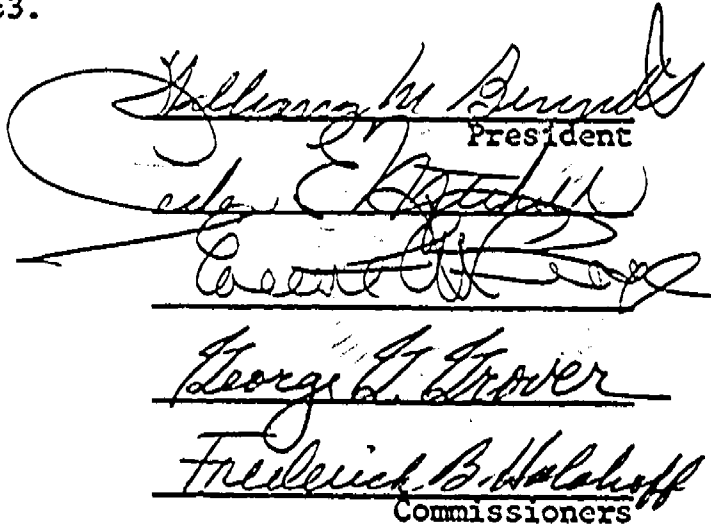 63.
William M. Bennett
President
George G. Grover
Frederick B. Holoboff
Commissioners